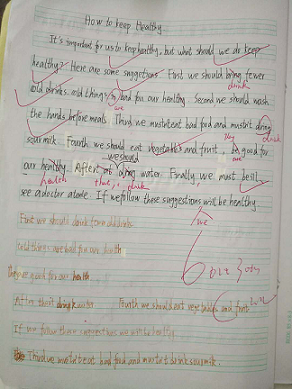 How to keep Healthy
It's important for us to keep healthy, but what should we do keep
healthy? Here are some suggestions. First we should bring fewer
drink
cold drinks. cold things is bad for our healthy. Second we should wash
are
the hands before meals. Third we mustn't eat bad food and mustn't dring
drink
sour milk. Fourth we should eat vegetables and fruit. be good for
they
are
our healthy. After at dring water. Finally we must be ill
we should
health
that, drink
see a doctor atome. If we follow those suggestions will be healthy.
we
First we should drink fewer cold drinks
cold things are bad for our health
They are good for our health
After that drink water Fourth we should eat vegetables and fruit
If we follow these suggestions we will be healthy
Third we mustn't eat bad food and mustn't drink sour milk.